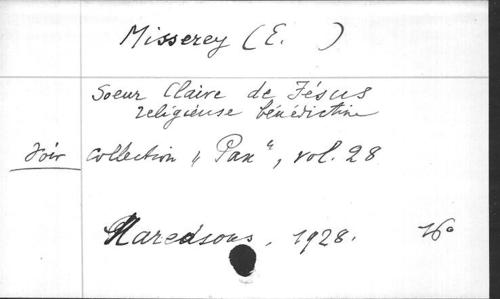 Misserey (E. )
Soeur Claire de Jésus
religieuse bénédictine
Voir collection „ Pax “, vol. 28
Maredsous, 1928. 16°